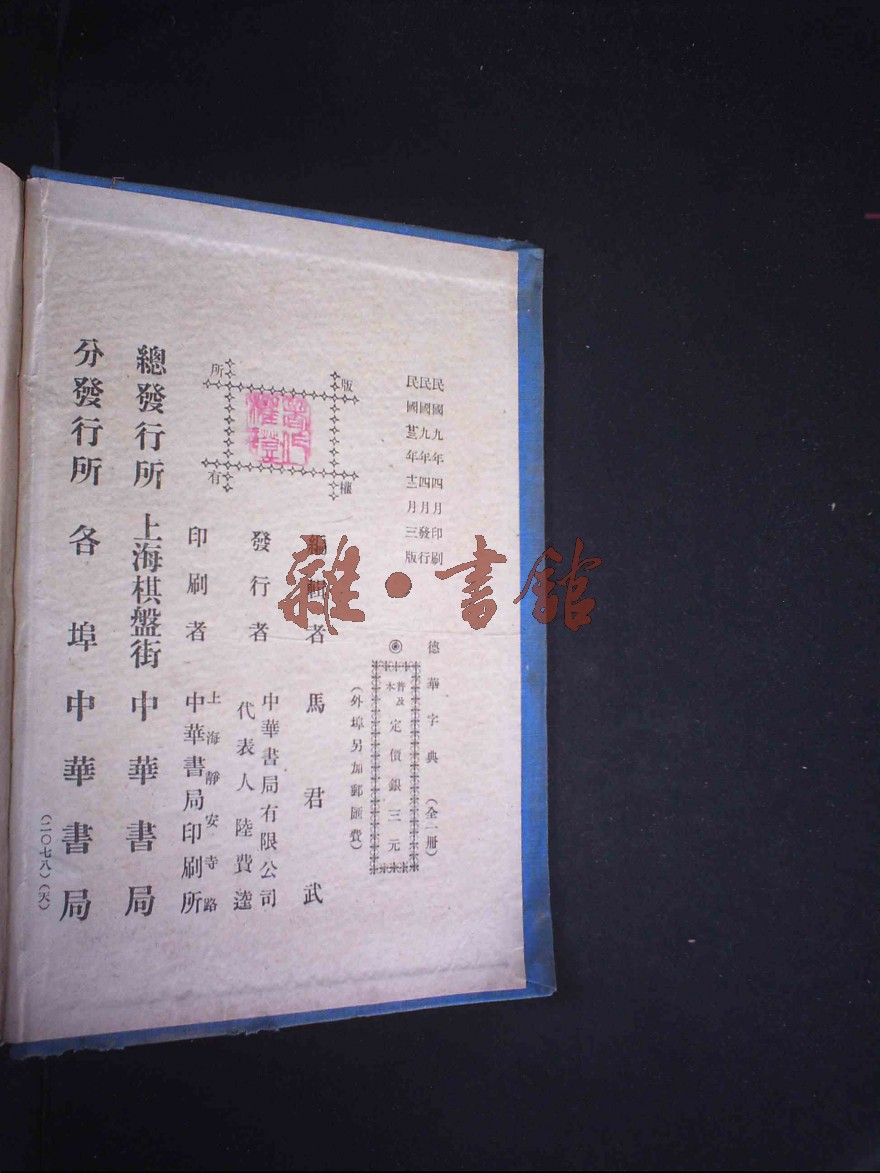 民國九年四月印刷
民國九年四月發行
民國廿二年十二月三版
德華字典(全一冊)
◎普及本定價銀三元
(外埠另加郵匯費)
版權所有
編輯者 馬君武
發行者 中華書局有限公司
代表人陸費逵
印刷者 上海靜安寺路
中華書局印刷所
總發行所 上海棋盤街中華書局
分發行所 各埠中華書局
(二〇七八)(天)
雜·書館